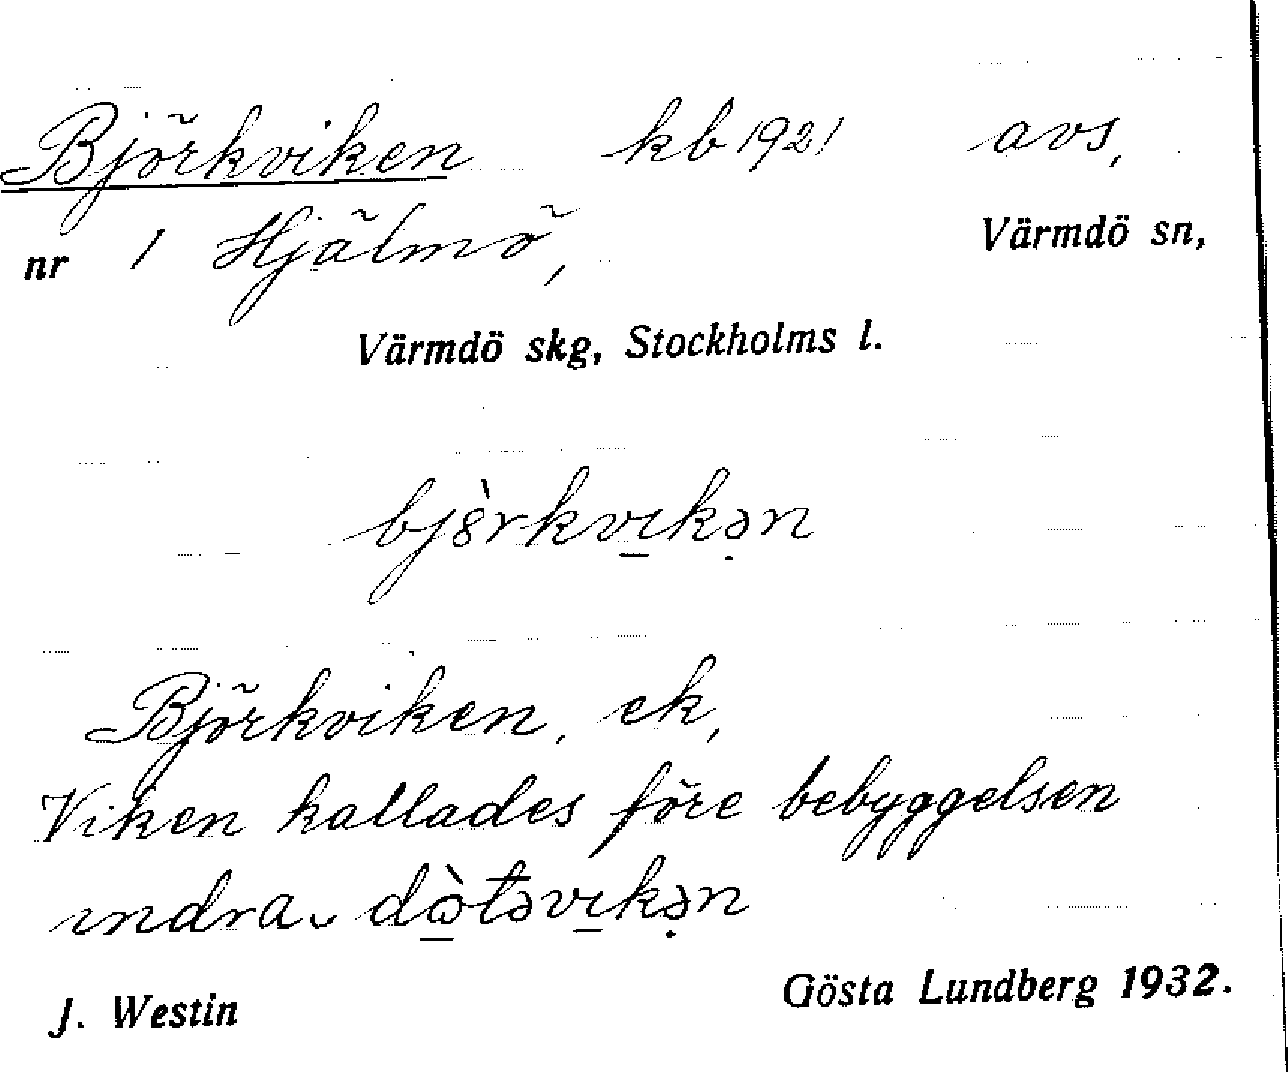 Björkviken kb 1921 avs,
nr 1 Hjälmö, Värmdö sn,
Värmdö skg, Stockholms l.
bj8̀rkvı̲kə̣n
Björkviken, ek,
Viken kallades före bebyggelsen
ındra dὼ̲təvı̲kə̣n
J. Westin Gösta Lundberg 1932.